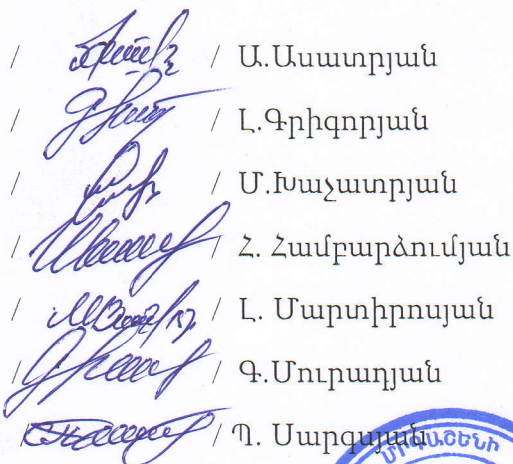 / / Ա.Ասատրյան
/ / Լ.Գրիգորյան
/ / Մ.Խաչատրյան
/ / Հ. Համբարձումյան
/ / Լ. Մարտիրոսյան
/ / Գ.Մուրադյան
/ / Պ. Սարգսյան
ՄՐԳԱՇԵՆԻ